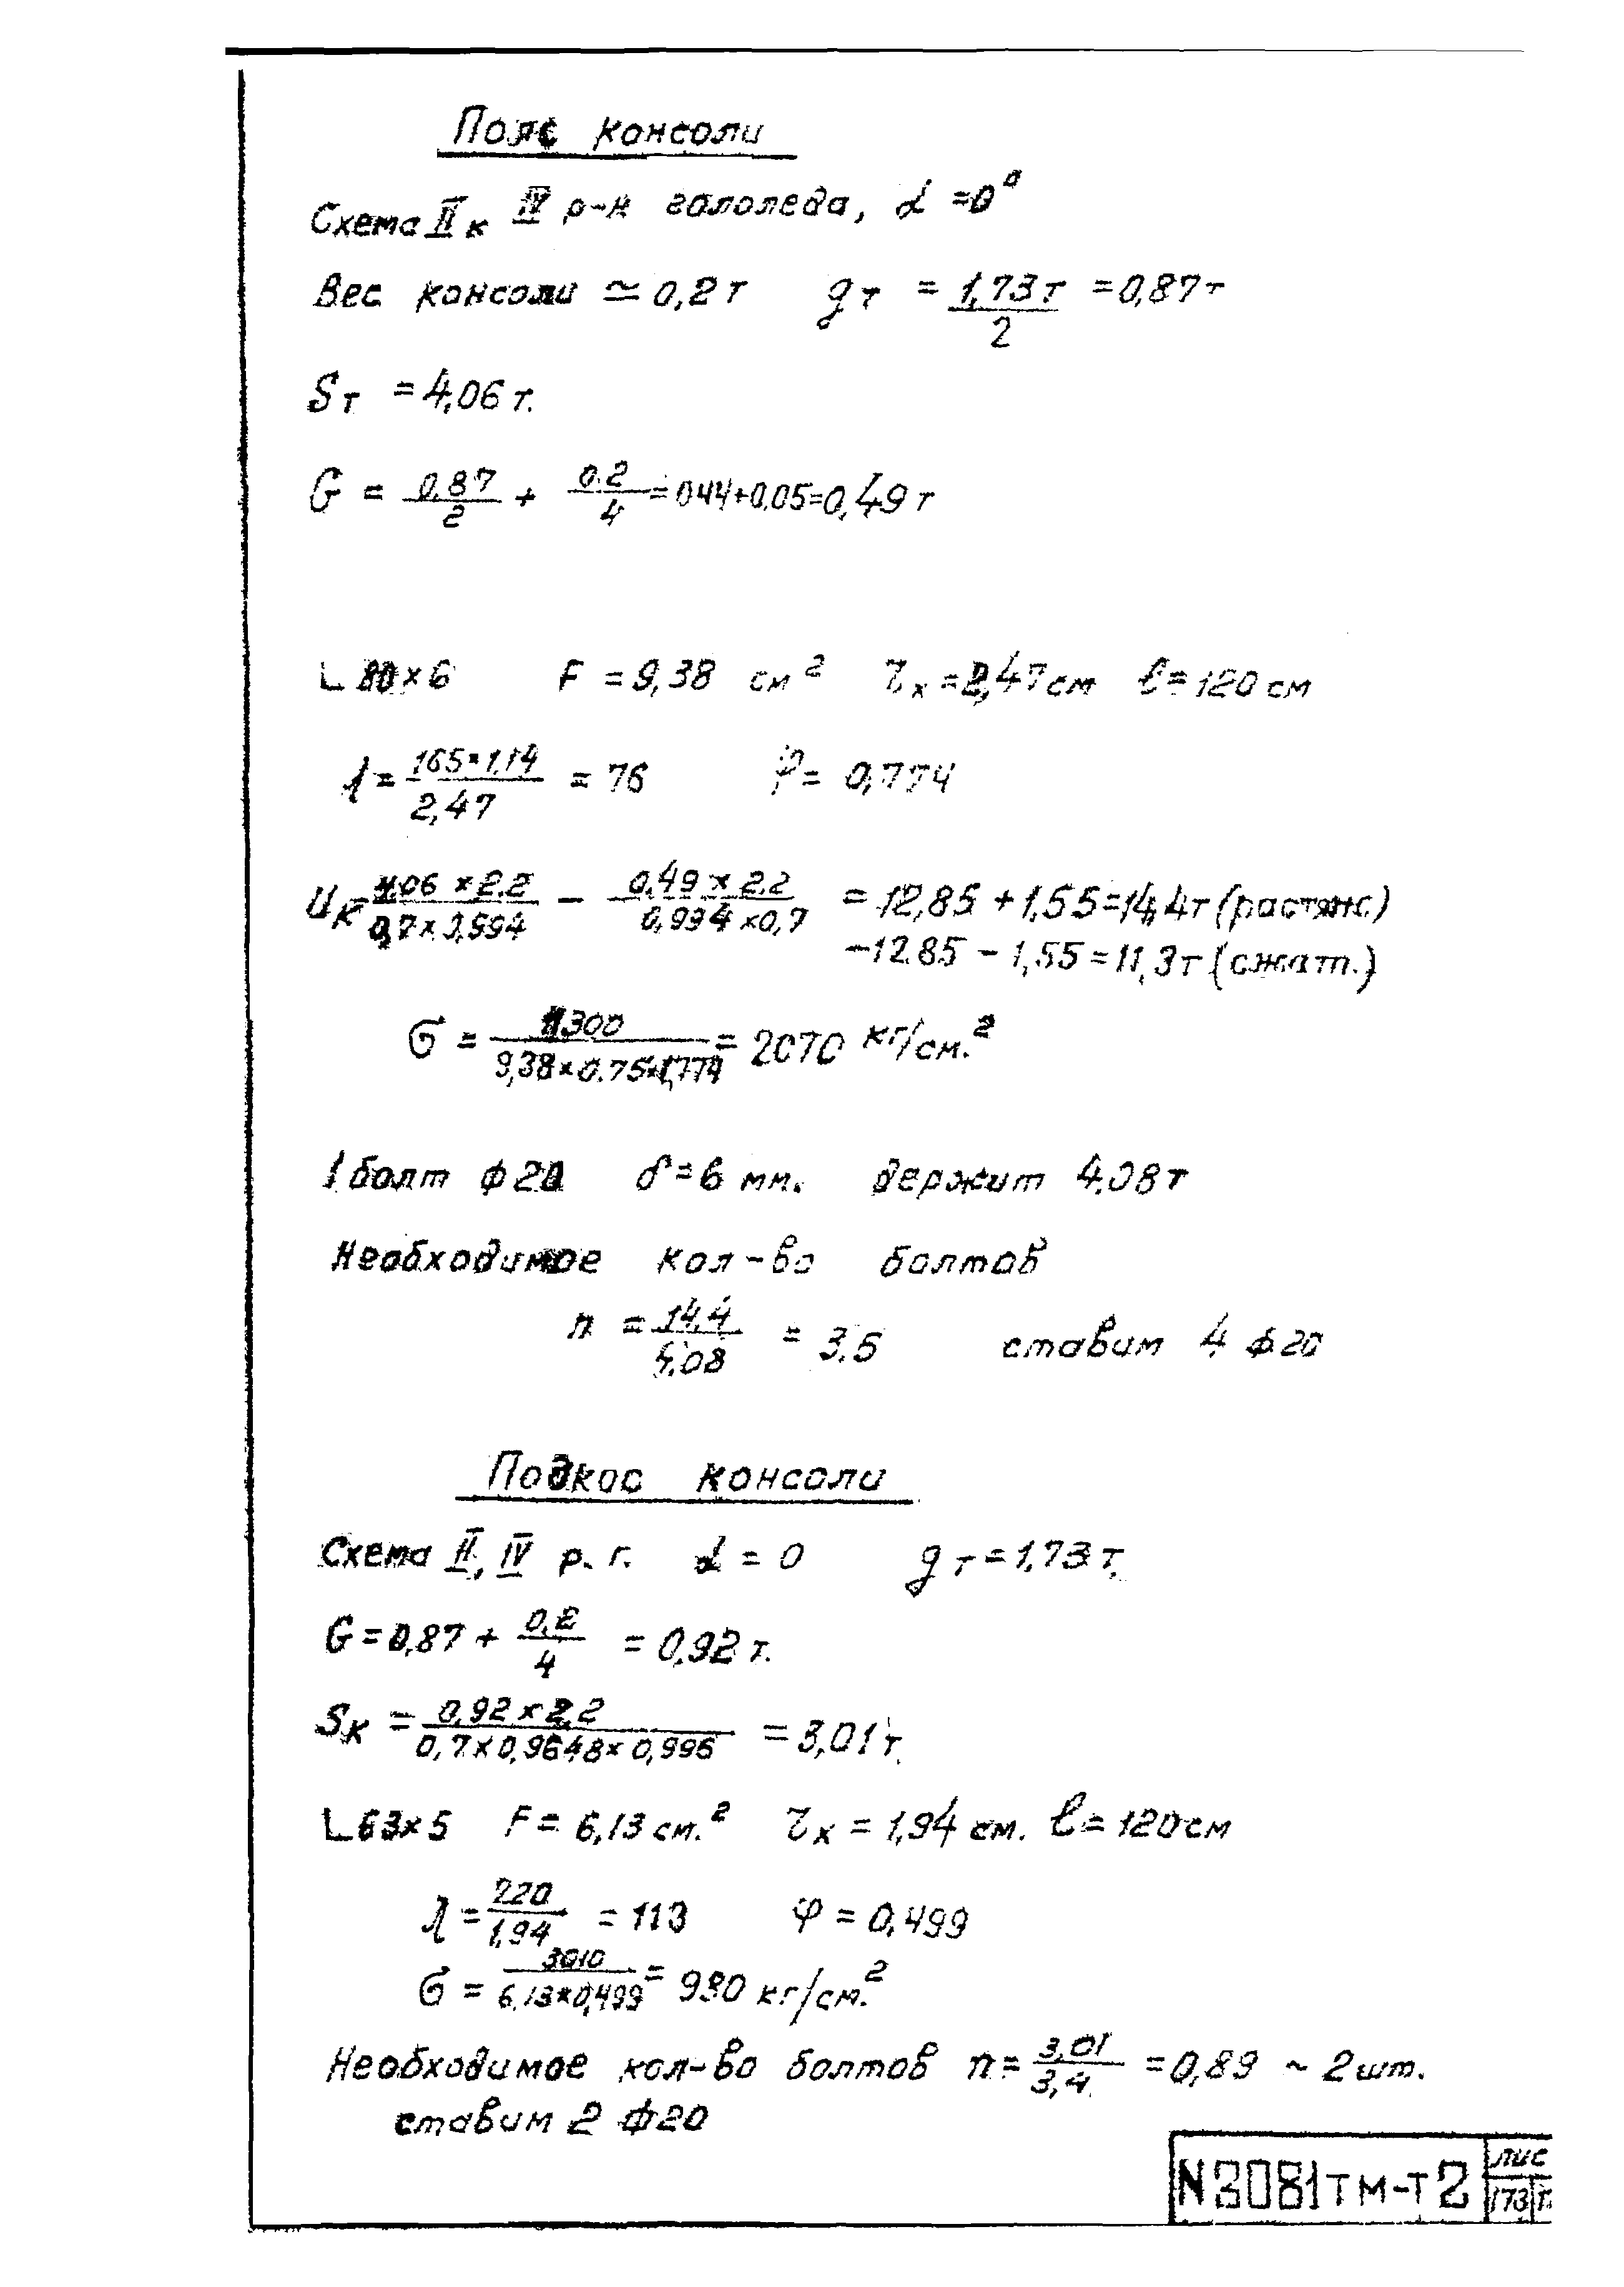 Пояс консоли
Схема IIк IV р-н гололеда, α = 0°
Вес консоли ≃ 0,2 т gт = 1,73 т / 2 = 0,87 т
Sт = 4,06 т.
G = 0,87 / 2 + 0.2 / 4 = 044 + 0,05 = 0,49 т
L 80×6 F = 9,38 см² rx = 2,47 см ℓ = 120 см
λ = 165×1,14 / 2,47 = 76 φ = 0,774
Uк = 4,06 × 2.2 / 0,7 × 0,994 − 0,49 × 2.2 / 0,994 × 0,7 = 12,85 + 1,55 = 14,4 т (растяж.)
−12.85 − 1,55 = 11,3 т (сжат.)
σ = 11300 / 9,38 × 0.75 × 0,774 = 2070 кг/см.²
1 болт ф 20 δ = 6 мм. держит 4.08 т
Необходимое кол-во болтов
n = 14,4 / 4,08 = 3.5 ставим 4 ф 20
Подкос консоли
Схема II, IV р. г. α = 0 gт = 1,73 т.
G = 0,87 + 0,2 / 4 = 0,92 т.
Sк = 0,92 × 2,2 / 0,7 × 0,9648 × 0,996 = 3,01 т.
L 63×5 F = 6,13 см.² rx = 1,94 см. ℓ = 120 см
λ = 220 / 1,94 = 113 φ = 0,499
σ = 3010 / 6,13 × 0,499 = 980 кг/см.²
Необходимое кол-во болтов n = 3,01 / 3,4 = 0,89 ~ 2 шт.
ставим 2 ф 20
N3081тм-т2 лис 173